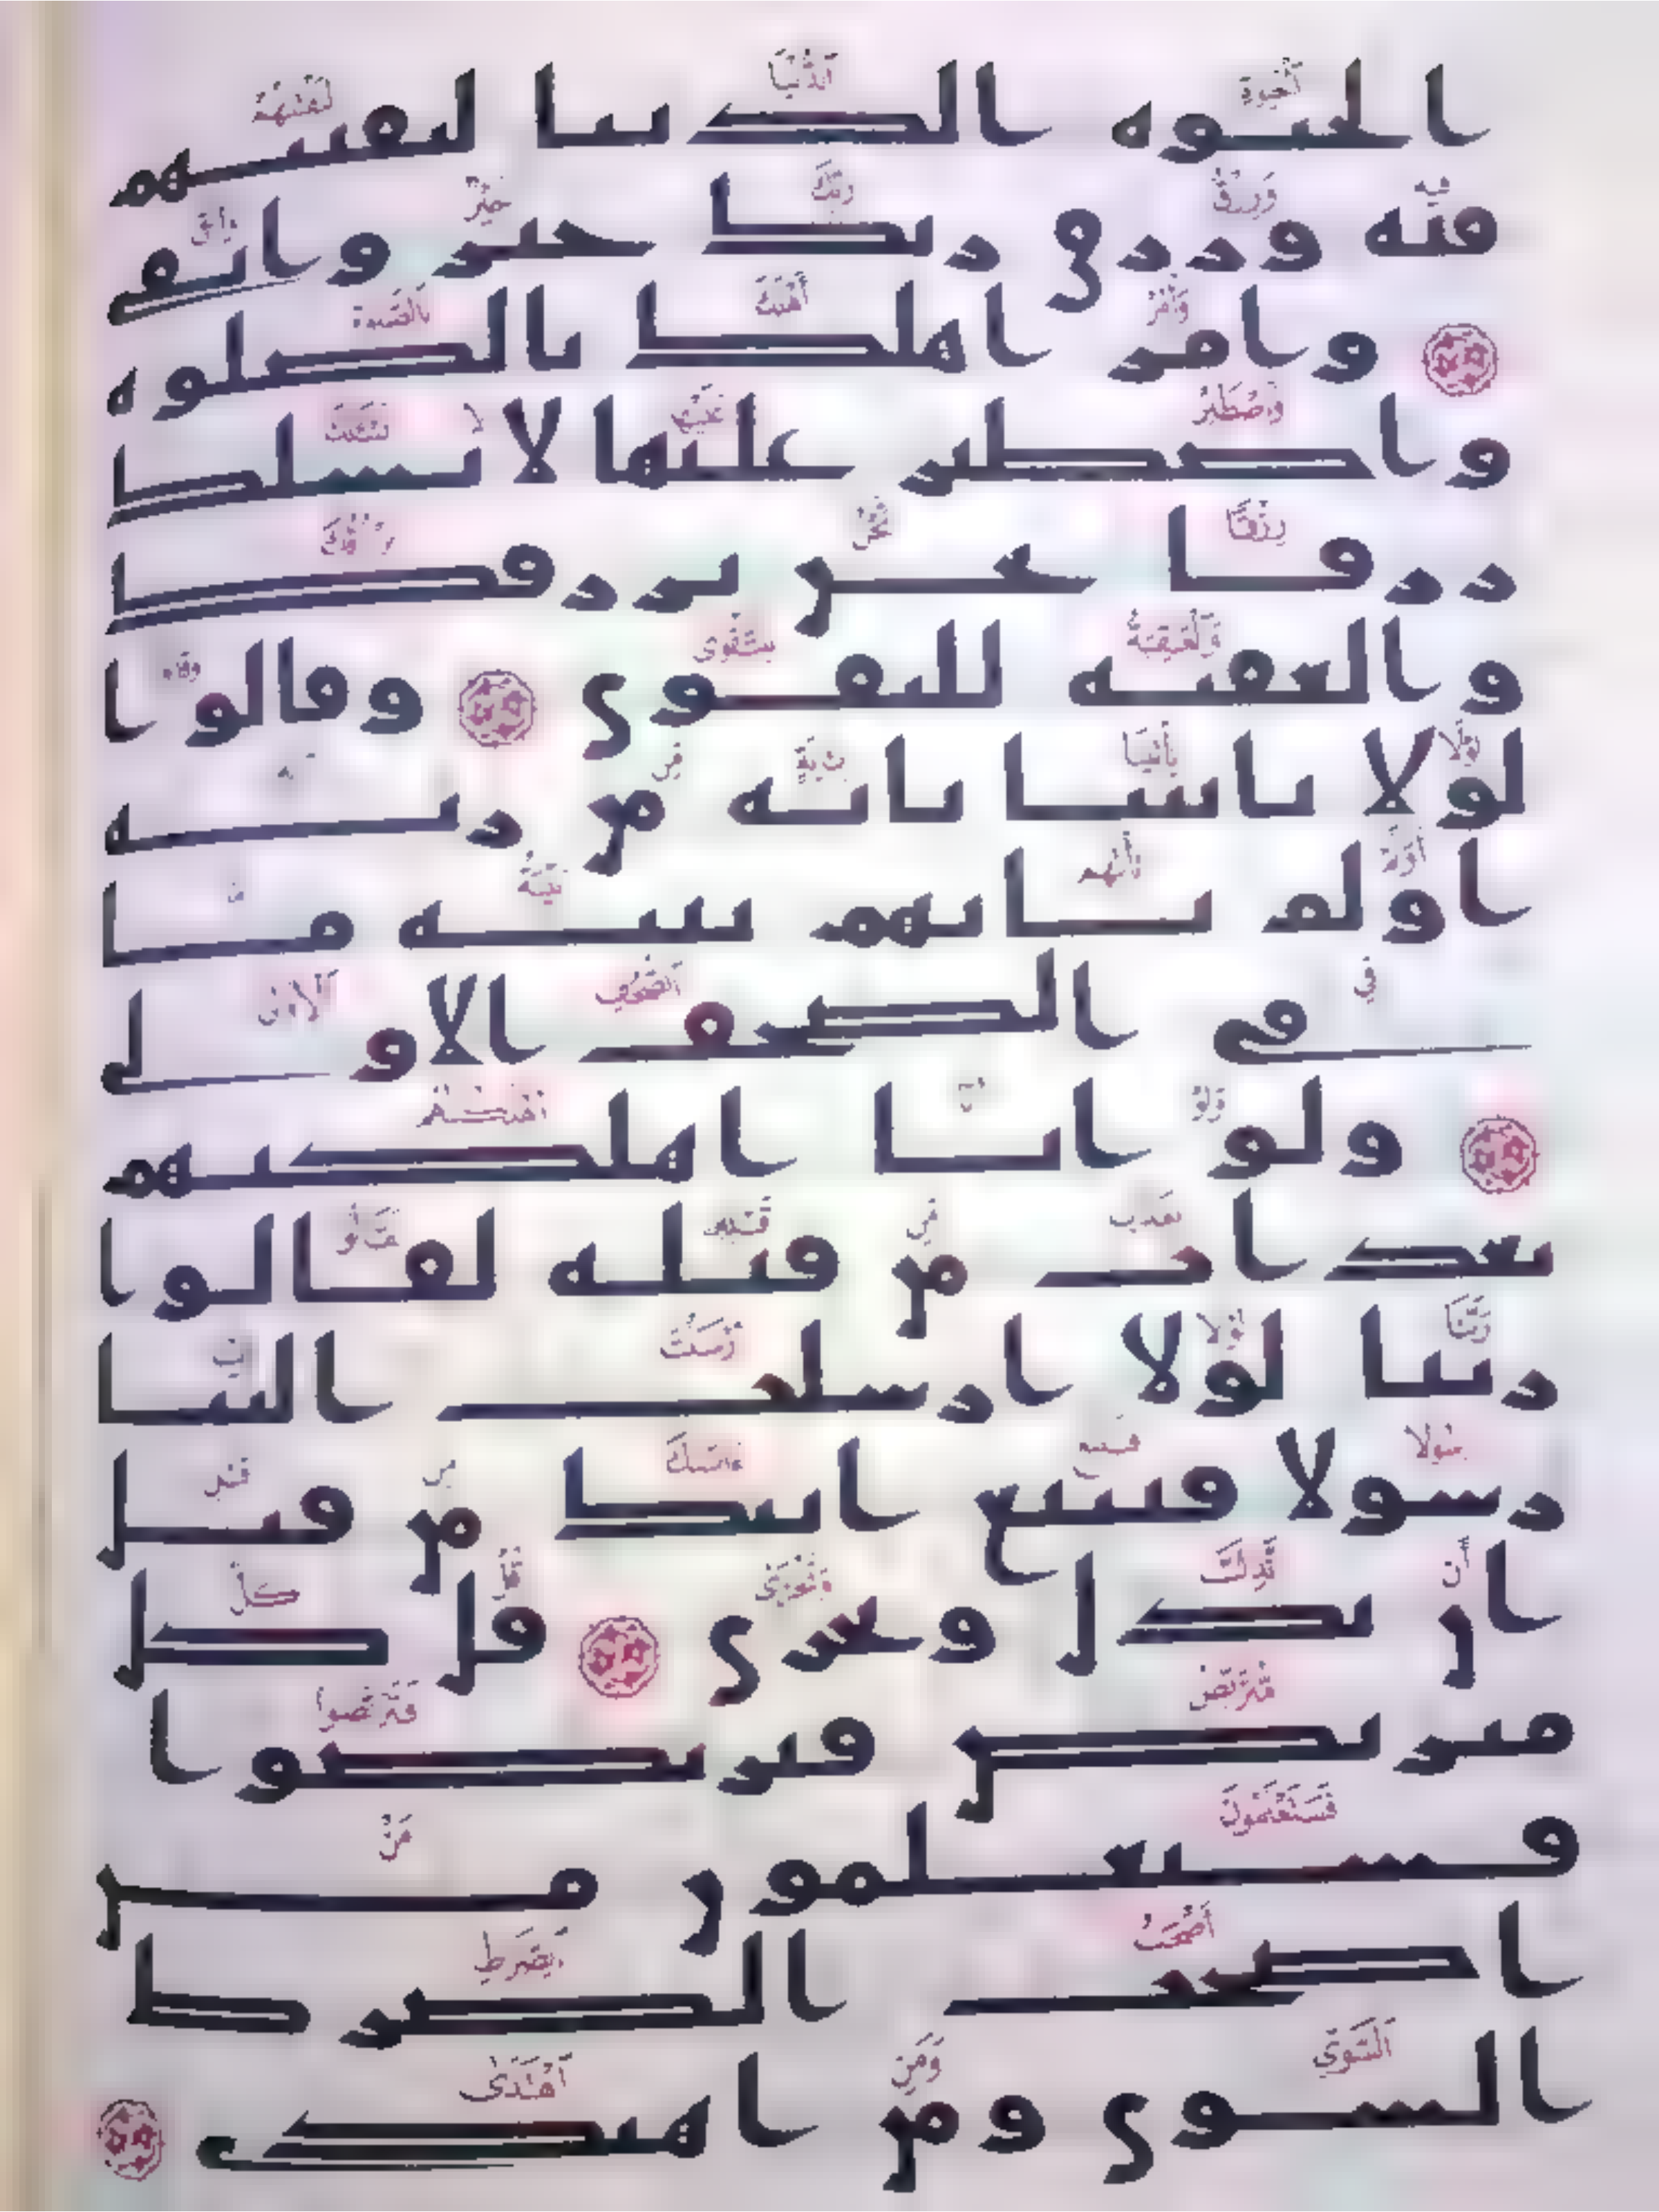 الحيوه الدنيا لنفتنهم
فيه ورزق ربك خير وابقى
وامر اهلك بالصلوه
واصطبر عليها لا نسلك
رزقا نحن نرزقك
والعقبه للتقوى وقالوا
لولا ياتينا بايه من ربه
اولم تاتهم بينه ما
في الصحف الاولى
ولو انا اهلكنهم
بعذاب من قبله لقالوا
ربنا لولا ارسلت الينا
رسولا فنتبع ايتك من قبل
ان نذل ونخزى قل كل
متربص فتربصوا
فستعلمون من
اصحب الصرط
السوي ومن اهتدى